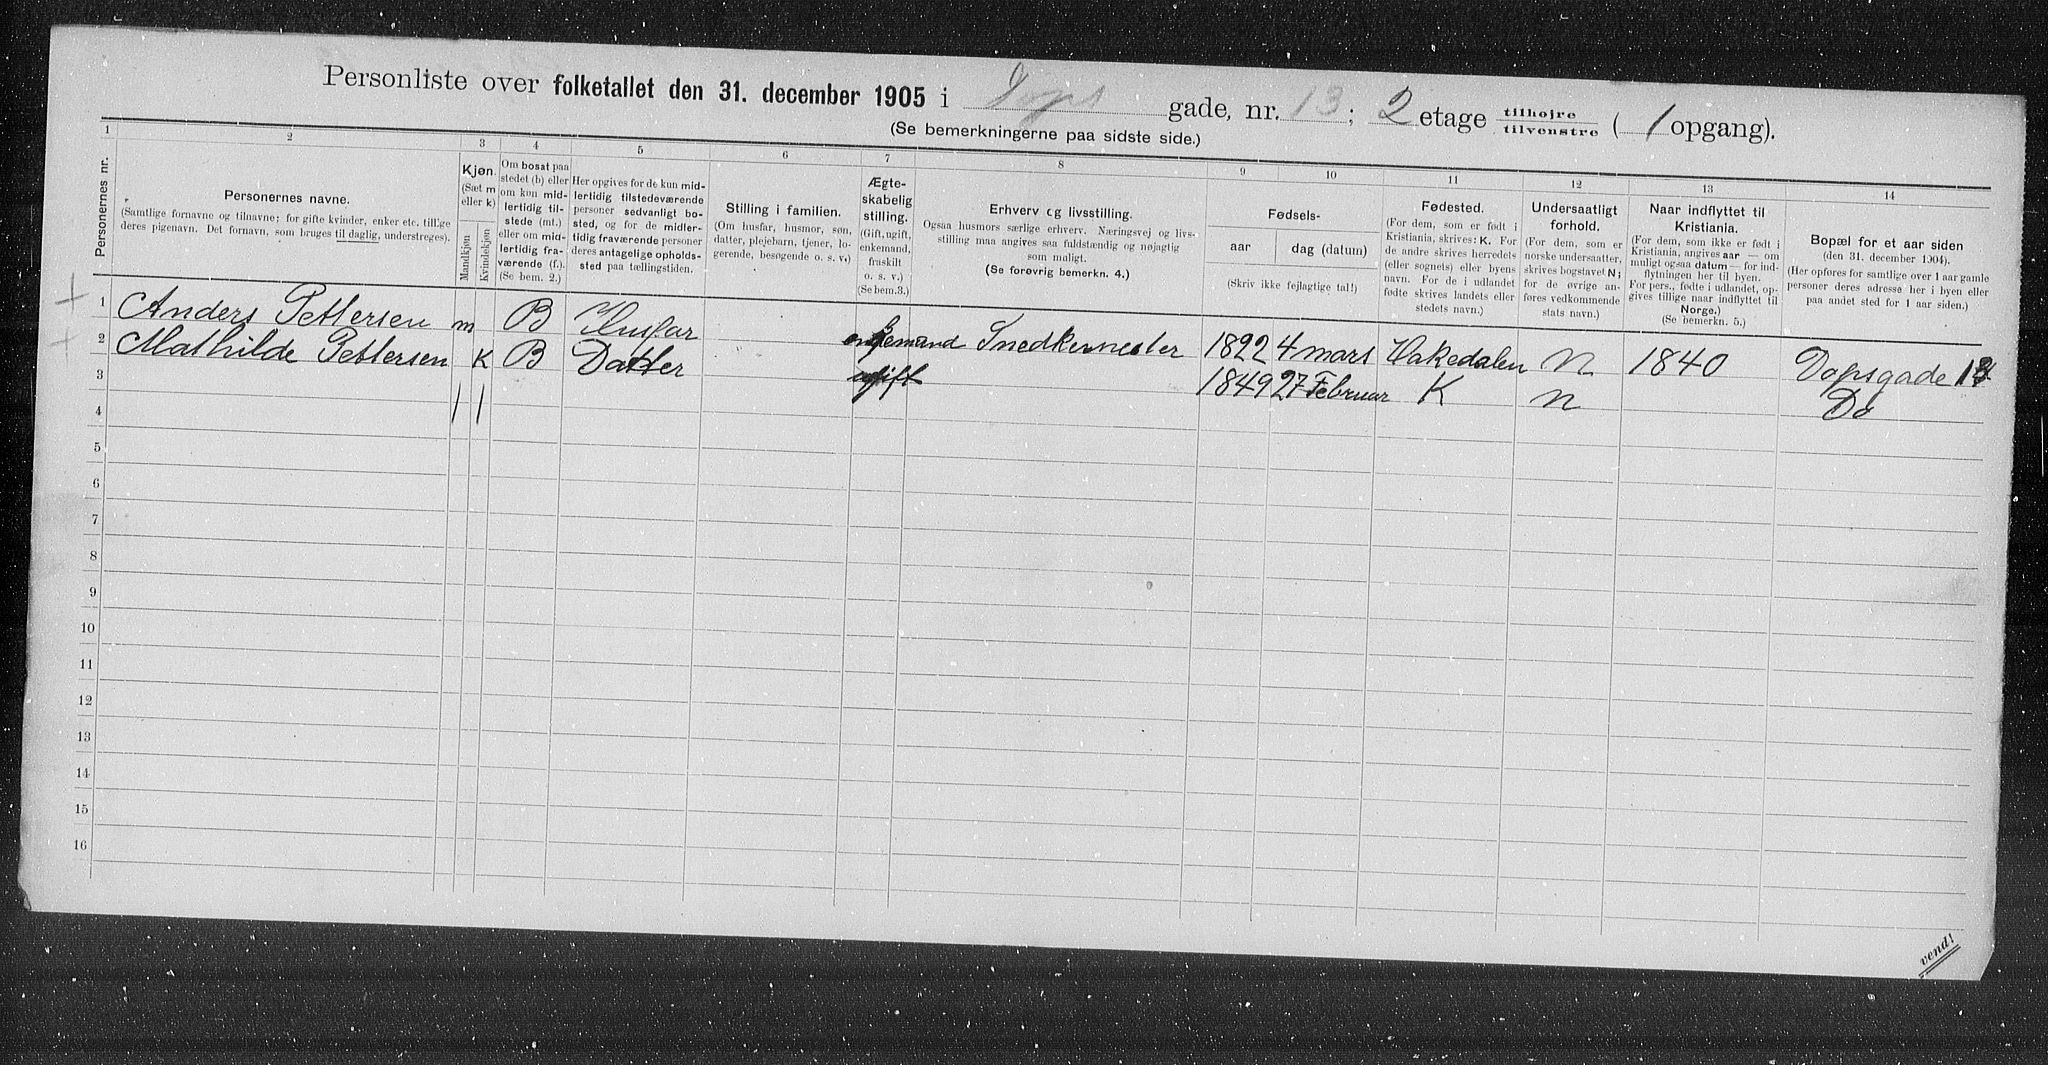 Personliste over folketallet den 31. december 1905 i Dops gade, nr. 13; 2 etage tilhøjre tilvenstre (1 opgang).
(Se bemerkningerne paa sidste side.)
1 2 3 4 5 6 7 8 9 10 11 12 13 14
Personernes nr.
Personernes navne.
(Samtlige fornavne og tilnavne; for gifte kvinder, enker etc. tillige
deres pigenavn. Det fornavn, som bruges til daglig, understreges).
Kjøn.
(Sæt m
eller k)
Mandkjøn
Kvindekjøn
Om bosat paa
stedet (b) eller
om kun mid-
lertidig til-
stede (mt.)
eller om mid-
lertidig fra-
værende (f.).
(Se bem. 2.)
Her opgives for de kun mid-
lertidig tilstedeværende
personer sedvanligt bo-
sted, og for de midler-
tidig fraværende personer
deres antagelige opholds-
sted paa tællingstiden.
Stilling i familien.
(Om husfar, husmor, søn,
datter, plejebarn, tjener, lo-
gerende, besøgende o. s. v.)
Ægte-
skabelig
stilling.
(Gift, ugift,
enkemand,
fraskilt
o. s. v.)
(Se bem.3.)
Erhverv og livsstilling.
Ogsaa husmors særlige erhverv. Næringsvej og livs-
stilling maa angives saa fuldstændig og nøjagtig
som muligt.
(Se forøvrig bemerkn. 4.)
Fødsels-
aar
dag (datum)
(Skriv ikke fejlagtige tal!)
Fødested.
(For dem, som er født i
Kristiania, skrives: K. For
de andre skrives herredets
(eller sognets) eller byens
navn. For de i udlandet
fødte skrives landets eller
stedets navn.)
Undersaatligt
forhold.
(For dem, som er
norske undersaatter,
skrives bogstavet N;
for de øvrige an-
føres vedkommende
stats navn.)
Naar indflyttet til
Kristiania.
(For dem, som ikke er født i
Kristiania, angives aar — om
muligt ogsaa datum — for ind-
flytningen her til byen.
For pers., fødte i udlandet, op-
gives tillige naar indflyttet til
Norge.)
(Se bemerkn. 5.)
Bopæl for et aar siden
(den 31. december 1904).
(Her opføres for samtlige over 1 aar gamle
personer deres adresse her i byen eller
paa andet sted for 1 aar siden.)
1 Anders Pettersen m B Husfar enkemand Snedkermester 1822 4 mars Hakedalen N 1840 Dopsgade 13
2 Mathilde Pettersen K B Datter ugift 1849 27 Februar K N Do
3
1 1
4
5
6
7
8
9
10
11
12
13
14
15
16
vend!